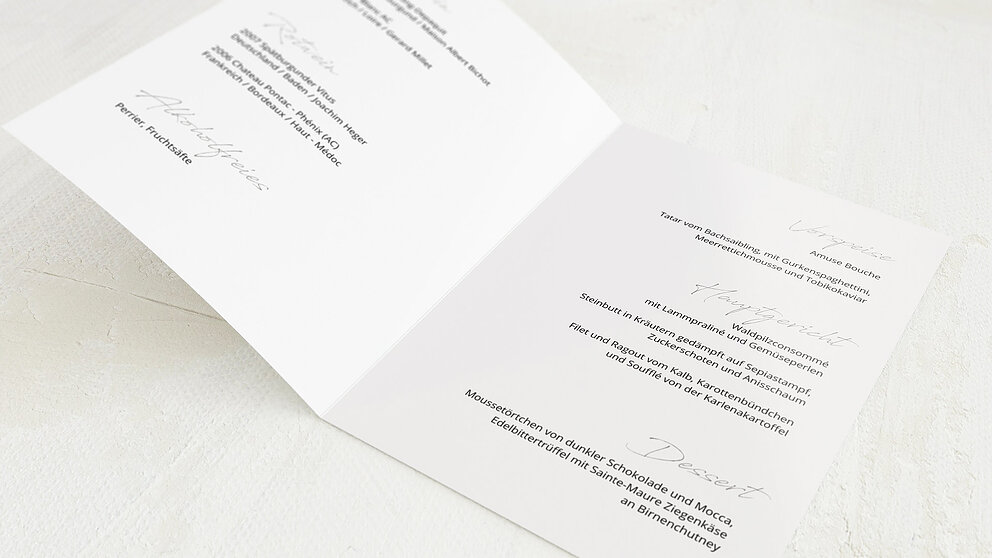 Maison Albert Bichot
Loire / Gerard Millet
Rotwein
2007 Spätburgunder Vitus
Deutschland / Baden / Joachim Heger
2006 Chateau Pontac - Phénix (AC)
Frankreich / Bordeaux / Haut - Médoc
Alkoholfreies
Perrier, Fruchtsäfte
Vorspeise
Amuse Bouche
Tatar vom Bachsaibling, mit Gurkenspaghettini,
Meerrettichmousse und Tobikokaviar
Hauptgericht
Waldpilzconsommé
mit Lammpraliné und Gemüseperlen
Steinbutt in Kräutern gedämpft auf Sepiastampf,
Zuckerschoten und Anisschaum
Filet und Ragout vom Kalb, Karottenbündchen
und Soufflé von der Karlenakartoffel
Dessert
Moussetörtchen von dunkler Schokolade und Mocca,
Edelbittertrüffel mit Sainte-Maure Ziegenkäse
an Birnenchutney